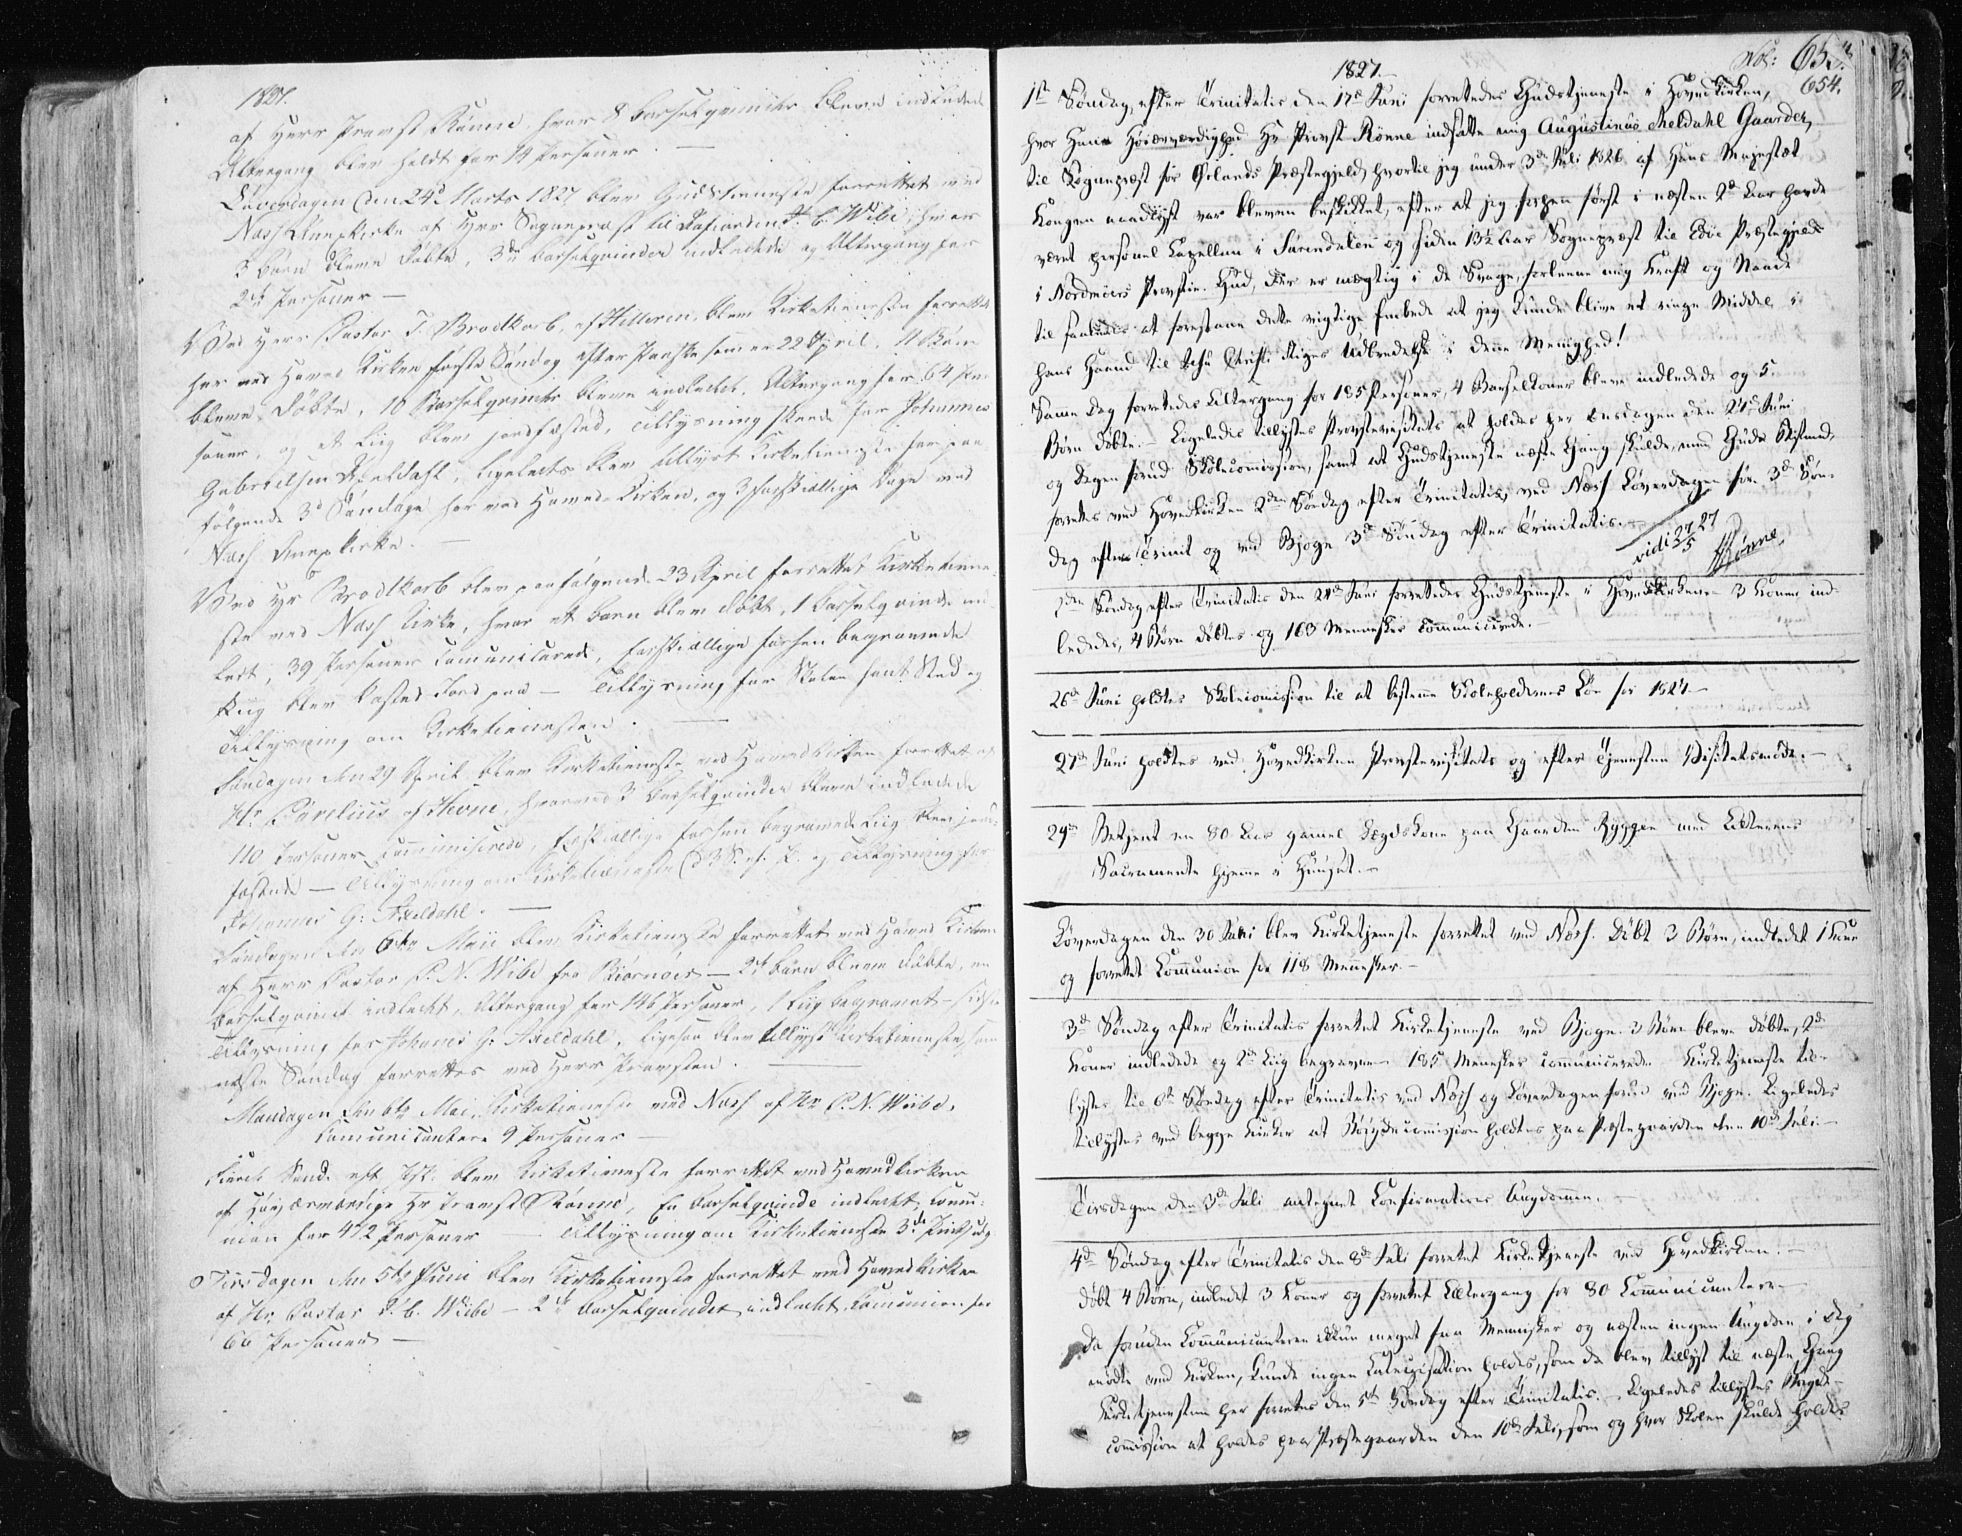 1827.
af Herr Provst Rönne, hvor 8 Barselqvinder bleve indledede
Altergang blev holdt for 14 Personer.
Löverdagen den 24de Marts 1827 blev Gudstieneste forrettet ved
Næss Annexkirke af Herr Sognepræst til C. Wibe, hvor
3 börn bleve döbte, 3de barselqvinder indledede og Altergang for
24 Personer —
Ved Herr Pastor T. Brodkorb, af Hitteren, blev Kirketienesten forrettet
her ved Hoved Kirken förste Söndag efter Paaske som er 22 April. 11 Börn
bleve Döbte, 10 Barselqvinder bleve indledet, Altergang for 64 Per
soner, og et Liig blev jordfæsted, Tillysning skeede for Johannes
Gabrielsen Axeldahl, ligeledes blev tillyst Kirketieneste her paa
fölgende 3de Söndage her ved Hoved-Kirken, og 3 forskiællige Dage ved
Næss Annexkirke. —
Ved Hr Brodkorb blev paafölgende 23 April forrettet Kirketiene
ste ved Næss Kirke, hvor et barn blev döbt, 1 barselqvinde ind
ledt, 39 Personer comunicerede, forskiællige forhen begravede
Liig blev kasted Jord paa — Tillysning for Skolen samt Sted og
Tillysning om Kirketienesten. —
Söndagen den 29 April blev Kirketieneste ved Hovedkirken forrettet af
Hr. Parelius af Hevne, hvorved 3 barselqvinder bleve indledede
110 Personer communicerede, forskiællige forhen begravede Liig blev jord
fæstede — Tillysning om Kirketieneste og Tillysning for
Johannes G: Axeldahl. —
Söndagen den 6te Maii blev Kirketieneste forrettet ved Hoved Kirken
af Herr Pastor C. N. Wibe fra Biörnöer — 2de börn bleve döbte, en
barselqvinde indledt, Altergang for 146 Personer, 1 Liig begravet — sidste
Tillysning for Johannes G: Axeldahl, ligesaa blev tillyst Kirketieneste, som
næste Söndag forrettes ved Herr Provsten. —
Mandagen den Mai, Kirketieneste ved Næss af Hr C. N. Wiibe,
Comunicantere 9 Personer —
Fierde Sönd. eft. blev Kirketieneste forrettet ved Hovedkirken
af Höyærværdige Hr Provst Rönne, En barselqvinde indledt, comu:
nion for 42 Personer — Tillysning om Kirketieneste 3de Pintsedag
Tirsdagen den 5te Juni blev Kirketieneste forrettet ved Hovedkirken
af Hr. Pastor C. Wiibe — 2de barselqvinder indledt, Comunion for
66 Personer —
1827.
Fol: 653.
654.
1ste Söndag efter Trinitatis den 17de Juni forrettedes Gudstjeneste i Hovedkirken,
hvor Hans Höiærværdighed Hr Provst Rönne indsatte mig Augustinus Meldahl Gaarder,
til Sognepræst for Ørlands Præstegjeld, hvortil jeg under 3de Juli 1826 af Hans Majestæt
Kongen naadigst var bleven beskikket, efter at jeg forhen först i næsten 2de Aar havde
været personel Capellan i Surendalen og siden 13½ Aar Sognepræst til Edöe Præstegjeld
i Nordmöers Provstie. Gud, der er mægtig i de Svage, forleene mig Kraft og Naade
til saaledes at forestaae dette vigtige Embede at jeg kunde blive et ringe Middel i
hans Haand til Jesu Christi Riges Udbredelse i denne Menighed!
Samme Dag forrettedes Altergang for 185 Personer, 4 Barselkoner bleve indledede og 5
Börn döbte. — Ligeledes tillystes Provstevisitats at holdes her Onsdagen den 27de Juni
og Dagen forud Skolecommission, samt at Gudstjeneste næste Gang skulde, med Guds Bistand,
forrettes ved Hovedkirken 2den Söndag efter Trinitatis, ved Næss Löverdagen för 3de Sön-
dag efter Trinit og ved Bjogn 3de Söndag efter Trinitatis.
vidi 27/5 27
Rönne
2den Söndag efter Trinitatis den 24de Juni forrettedes Gudstjeneste i Hovedkirken. 3 Koner ind-
lededes, 4 Börn döbtes og 163 Mennesker communicerede.
26de Juni holdtes Skolecomission til at bestemme Skoleholdernes Lön for 1827.
27de Juni holdtes ved Hovedkirken Provstevisitats og efter Tjenesten Visitatsmöde. —
29de Betjent en 80 Aar gamel Lægdskone paa Gaarden Ryggen med Alterens
Sacramente hjemme i Huuset. —
Löverdagen den 30 Juni blev Kirketjeneste forrettet ved Næss. Döbt 3 Börn, indledet 1 Kone
og forrettet Communion for 118 Mennesker. —
3de Söndag efter Trinitatis forrettet Kirketjeneste ved Bjogn. 3 Börn bleve döbte, 2de
Koner indledede og 2de Liig begravne. 185 Mennesker communicerede. Kirketjeneste til-
lystes til 6te Söndag efter Trinitatis ved Næss og Löverdagen forud ved Bjogn. Ligeledes
tillystes ved begge Kirker at comission holdtes paa Præstegaarden den 10de Juli. —
Tirsdagen den 3de Juli antegnet Confirmations Ungdommen.
4de Söndag efter Trinitatis den 8de Juli forrettet Kirketjeneste ved Hovedkirken. —
döbt 4 Börn, indledet 3 Koner og forrettet Altergang for 80 Communicantere —
Da foruden Communicanterne ikkun meget faa Mennesker og næsten ingen Ungdom i Dag
mödte ved Kirken, kunde ingen Catechisation holdes, som da blev tillyst til næste Gang
Kirketjenesten her forrettes den 5te Söndag efter Trinitatis. — Ligeledes tillystes
comission at holdes paa Præstegaarden den 10de Juli, som og hvor Skolen skulde holdes